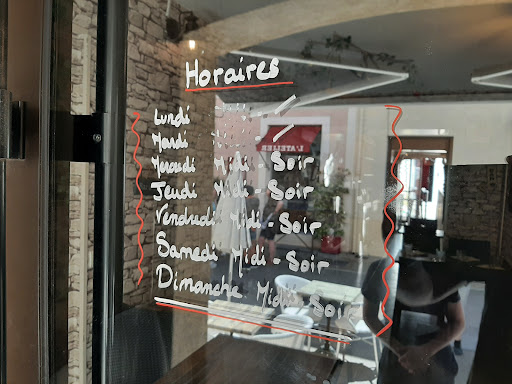 Horaires
Lundi
Mardi
Mercredi Midi - Soir
Jeudi Midi - Soir
Vendredi Midi - Soir
Samedi Midi - Soir
Dimanche Midi - Soir
L'ATELIER